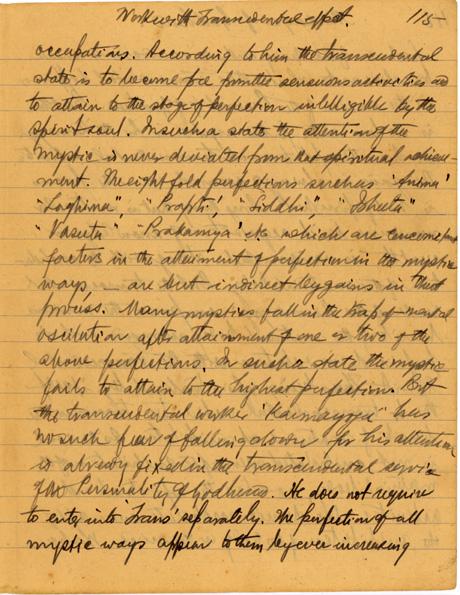 Work with Transcendental effect. 115
occupations. According to him the transcendental
state is to become free from the sensuous activities and
to attain to the stage of perfection intelligible by the
spirit soul. In such a state the attention of the
mystic is never deviated from that spiritual achieve-
ment. The eight fold perfections such as 'Anima'
"Laghima", "Prapti", "Siddhi", "Ishita"
"Vasita" "Prakamya" etc which are
factors in the attainment of perfection in the mystic
ways — are but indirect bygains in that
process. Many mystics fall in the trap of mental
oscilation after attainment of one or two of the
above perfections. In such a state the mystic
fails to attain to the highest perfection. But
the transcendental worker 'Karmayogi' has
no such fear of falling down for his attention
is already fixed in the transcendental service
of the Personality of Godhead. He does not require
to enter into Trans' separately. The perfection of all
mystic ways appear to them by ever increasing